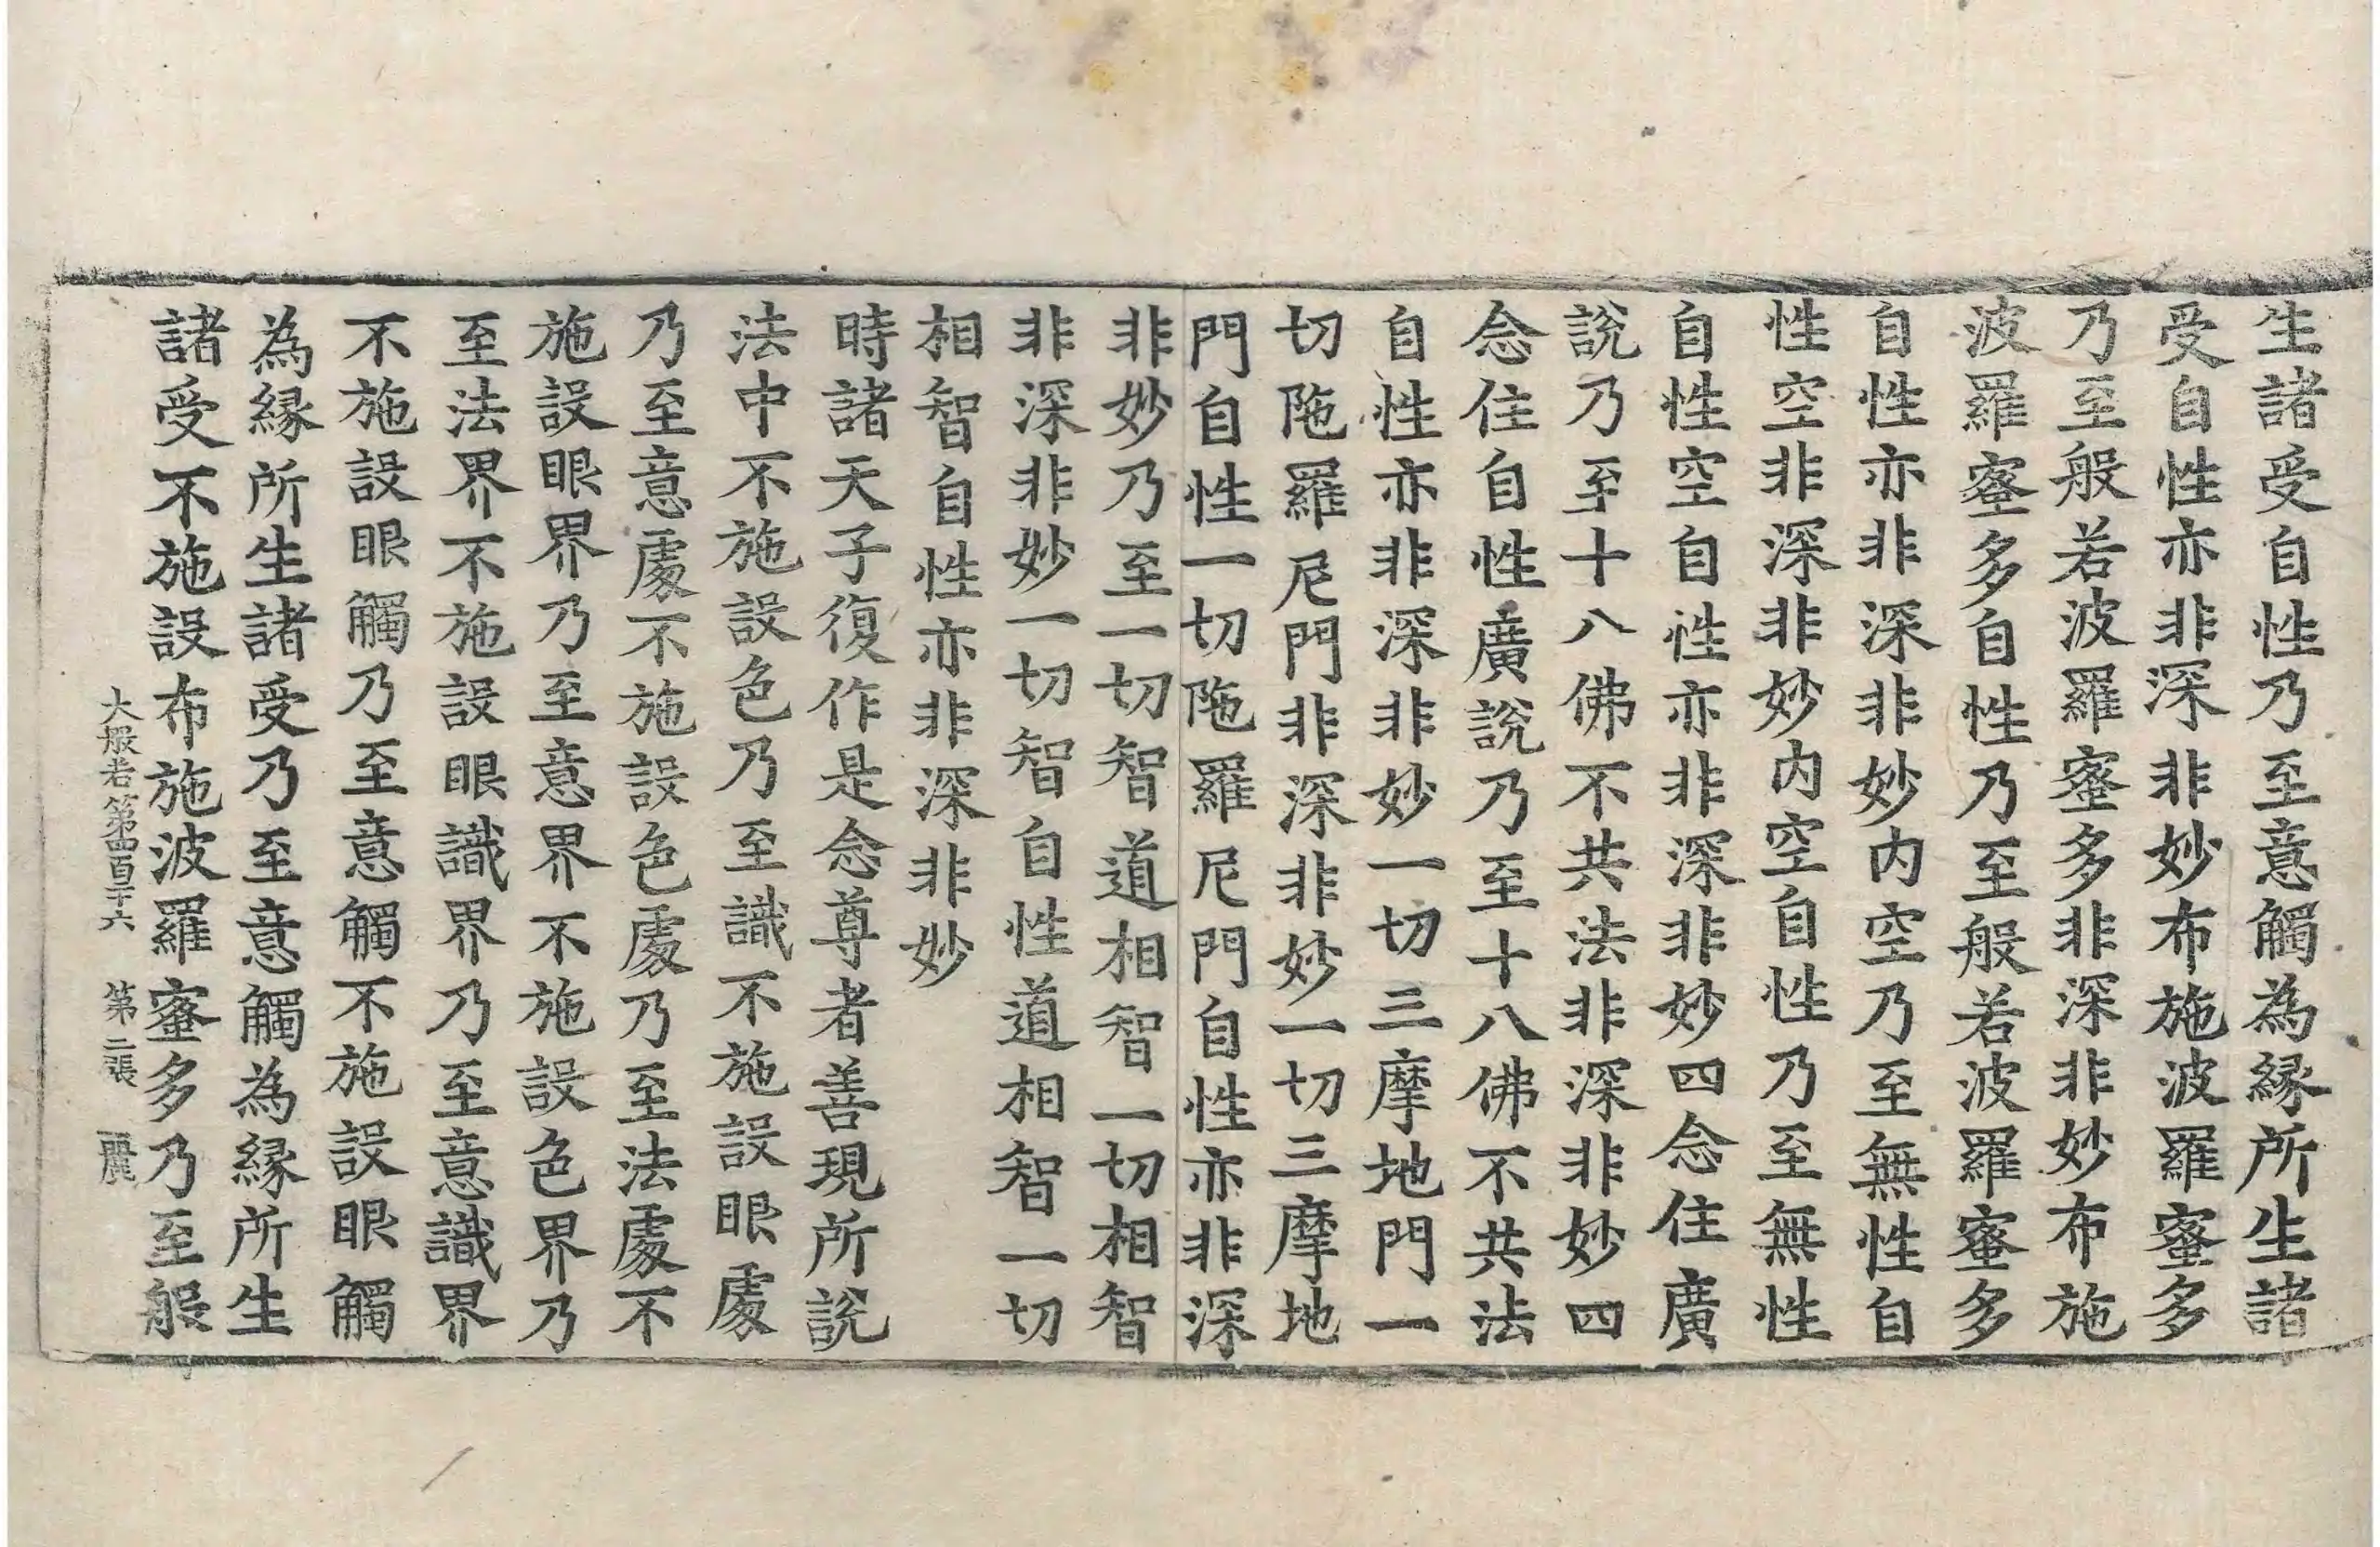 生諸受自性乃至意觸為縁所生諸
受自性亦非深非妙布施波羅蜜多
乃至般若波羅蜜多非深非妙布施
波羅蜜多自性乃至般若波羅蜜多
自性亦非深非妙内空乃至無性自
性空非深非妙内空自性乃至無性
自性空自性亦非深非妙四念住廣
說乃至十八佛不共法非深非妙四
念住自性廣說乃至十八佛不共法
自性亦非深非妙一切三摩地門一
切陁羅尼門非深非妙一切三摩地
門自性一切陁羅尼門自性亦非深
非妙乃至一切智道相智一切相智
非深非妙一切智自性道相智一切
相智自性亦非深非妙
時諸天子復作是念尊者善現所說
法中不施設色乃至識不施設眼處
乃至意處不施設色處乃至法處不
施設眼界乃至意界不施設色界乃
至法界不施設眼識界乃至意識界
不施設眼觸乃至意觸不施設眼觸
為縁所生諸受乃至意觸為縁所生
諸受不施設布施波羅蜜多乃至般
大般若第四百九十六 第二張 麗